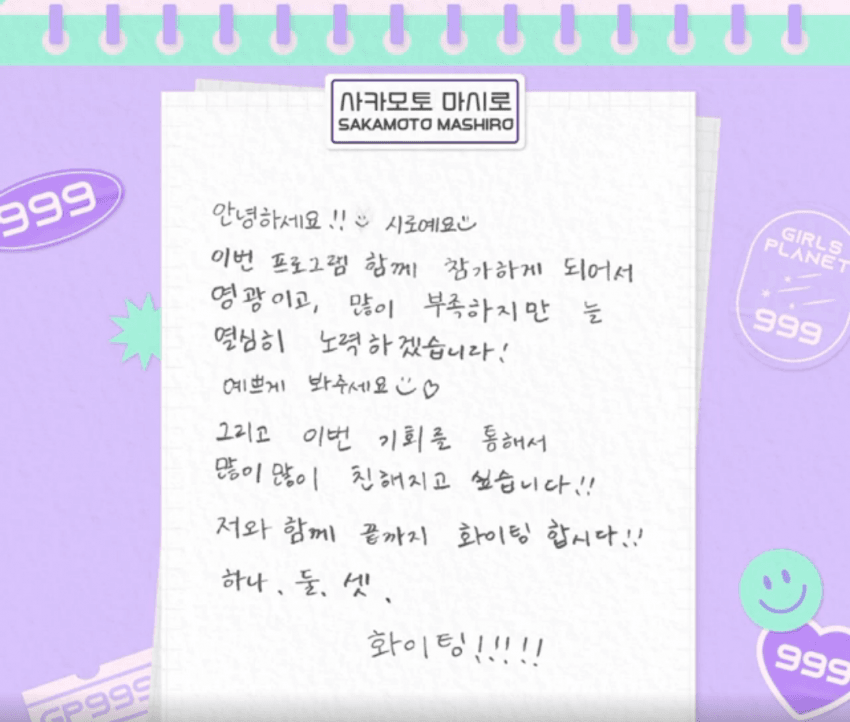 사카모토 마시로
SAKAMOTO MASHIRO
안녕하세요!! 시로예요
이번 프로그램 함께 참가하게 되어서
영광이고, 많이 부족하지만 늘
열심히 노력하겠습니다!
예쁘게 봐주세요 ♡
그리고 이번 기회를 통해서
많이많이 친해지고 싶습니다!!
저와 함께 끝까지 화이팅 합시다!!
하나. 둘. 셋.
화이팅!!!!!
999
GIRLS
PLANET
999
999
GP999